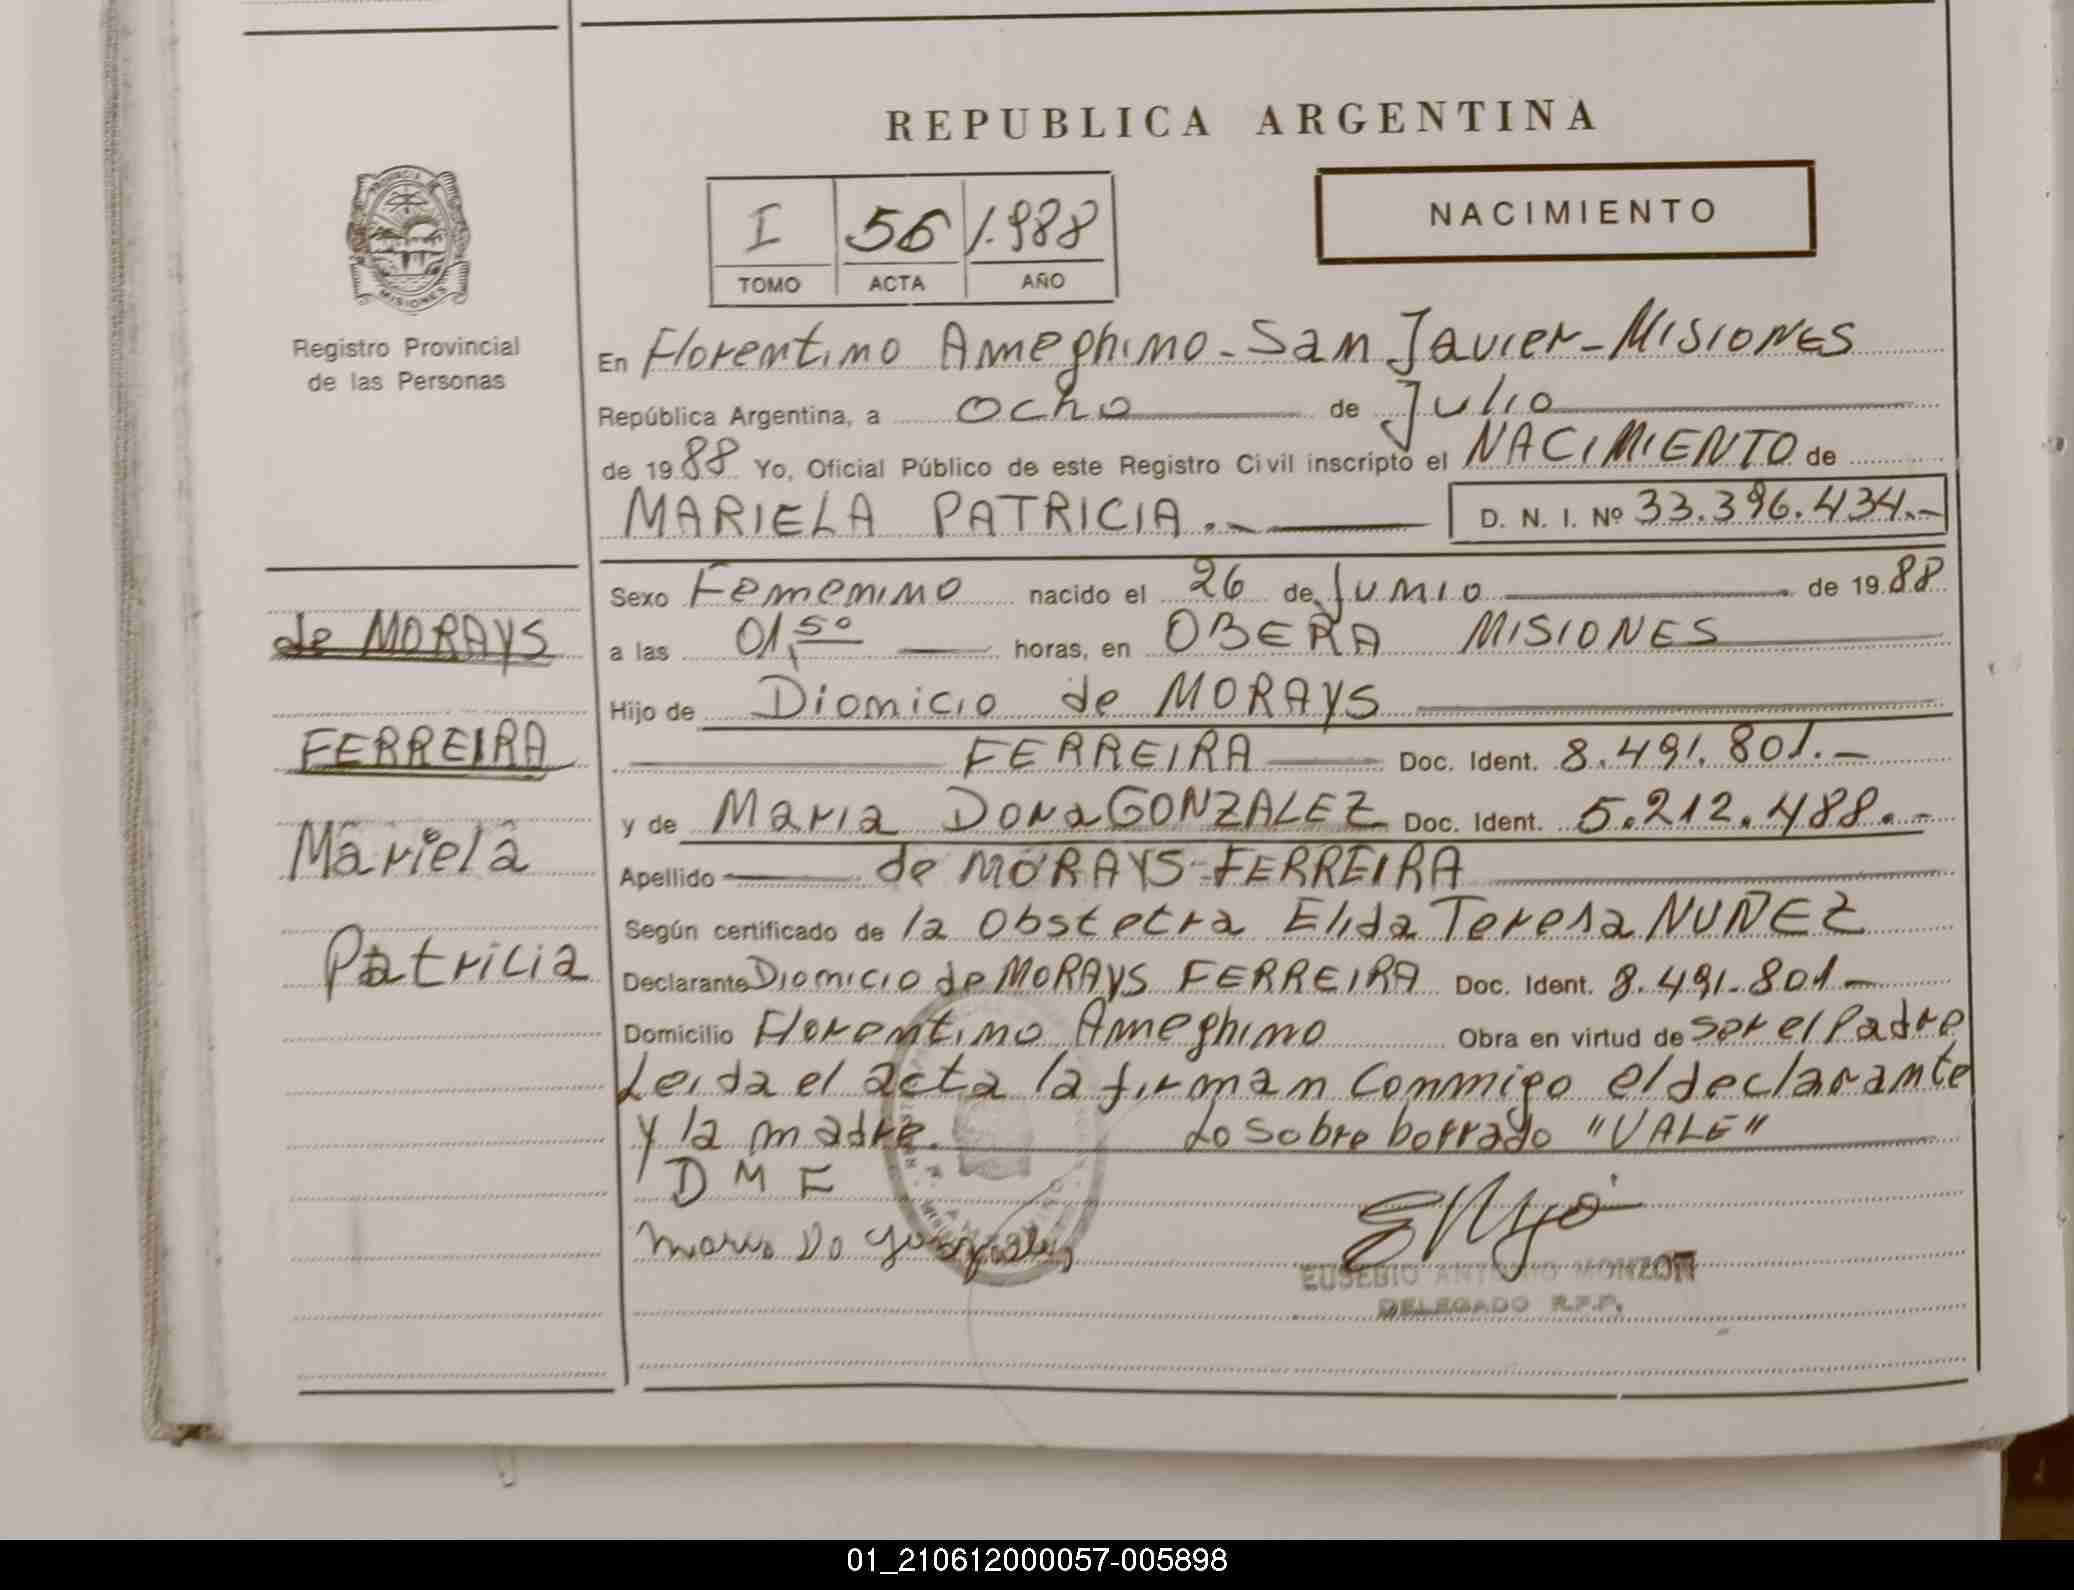 REPUBLICA ARGENTINA
NACIMIENTO
I 56 1.988
TOMO ACTA AÑO
PROVINCIA DE
MISIONES
Registro Provincial
de las Personas
En Florentino Ameghino - San Javier - MISIONES
República Argentina, a ocho de Julio
de 1988 Yo, Oficial Público de este Registro Civil inscripto el NACIMIENTO de
MARIELA PATRICIA.- D. N. I. Nº 33.396.434.-
Sexo Femenino nacido el 26 de Junio de 1988
de MORAYS
a las 01,50 horas, en OBERA MISIONES
Hijo de Dionicio de MORAYS
FERREIRA
FERREIRA Doc. Ident. 8.491.801.-
y de Maria Dona GONZALEZ Doc. Ident. 5.212.488.-
Mariela
Apellido de MORAYS-FERREIRA
Según certificado de la Obstetra Elida Teresa NUÑEZ
Patricia
Declarante Dionicio de MORAYS FERREIRA Doc. Ident. 8.491.801-
Domicilio Florentino Ameghino Obra en virtud de ser el Padre
Leida el acta la firman conmigo el declarante
y la madre. Lo sobre borrado "VALE"
D M F
EUSEBIO ANTONIO MONZON
DELEGADO R.P.P.
01_210612000057-005898